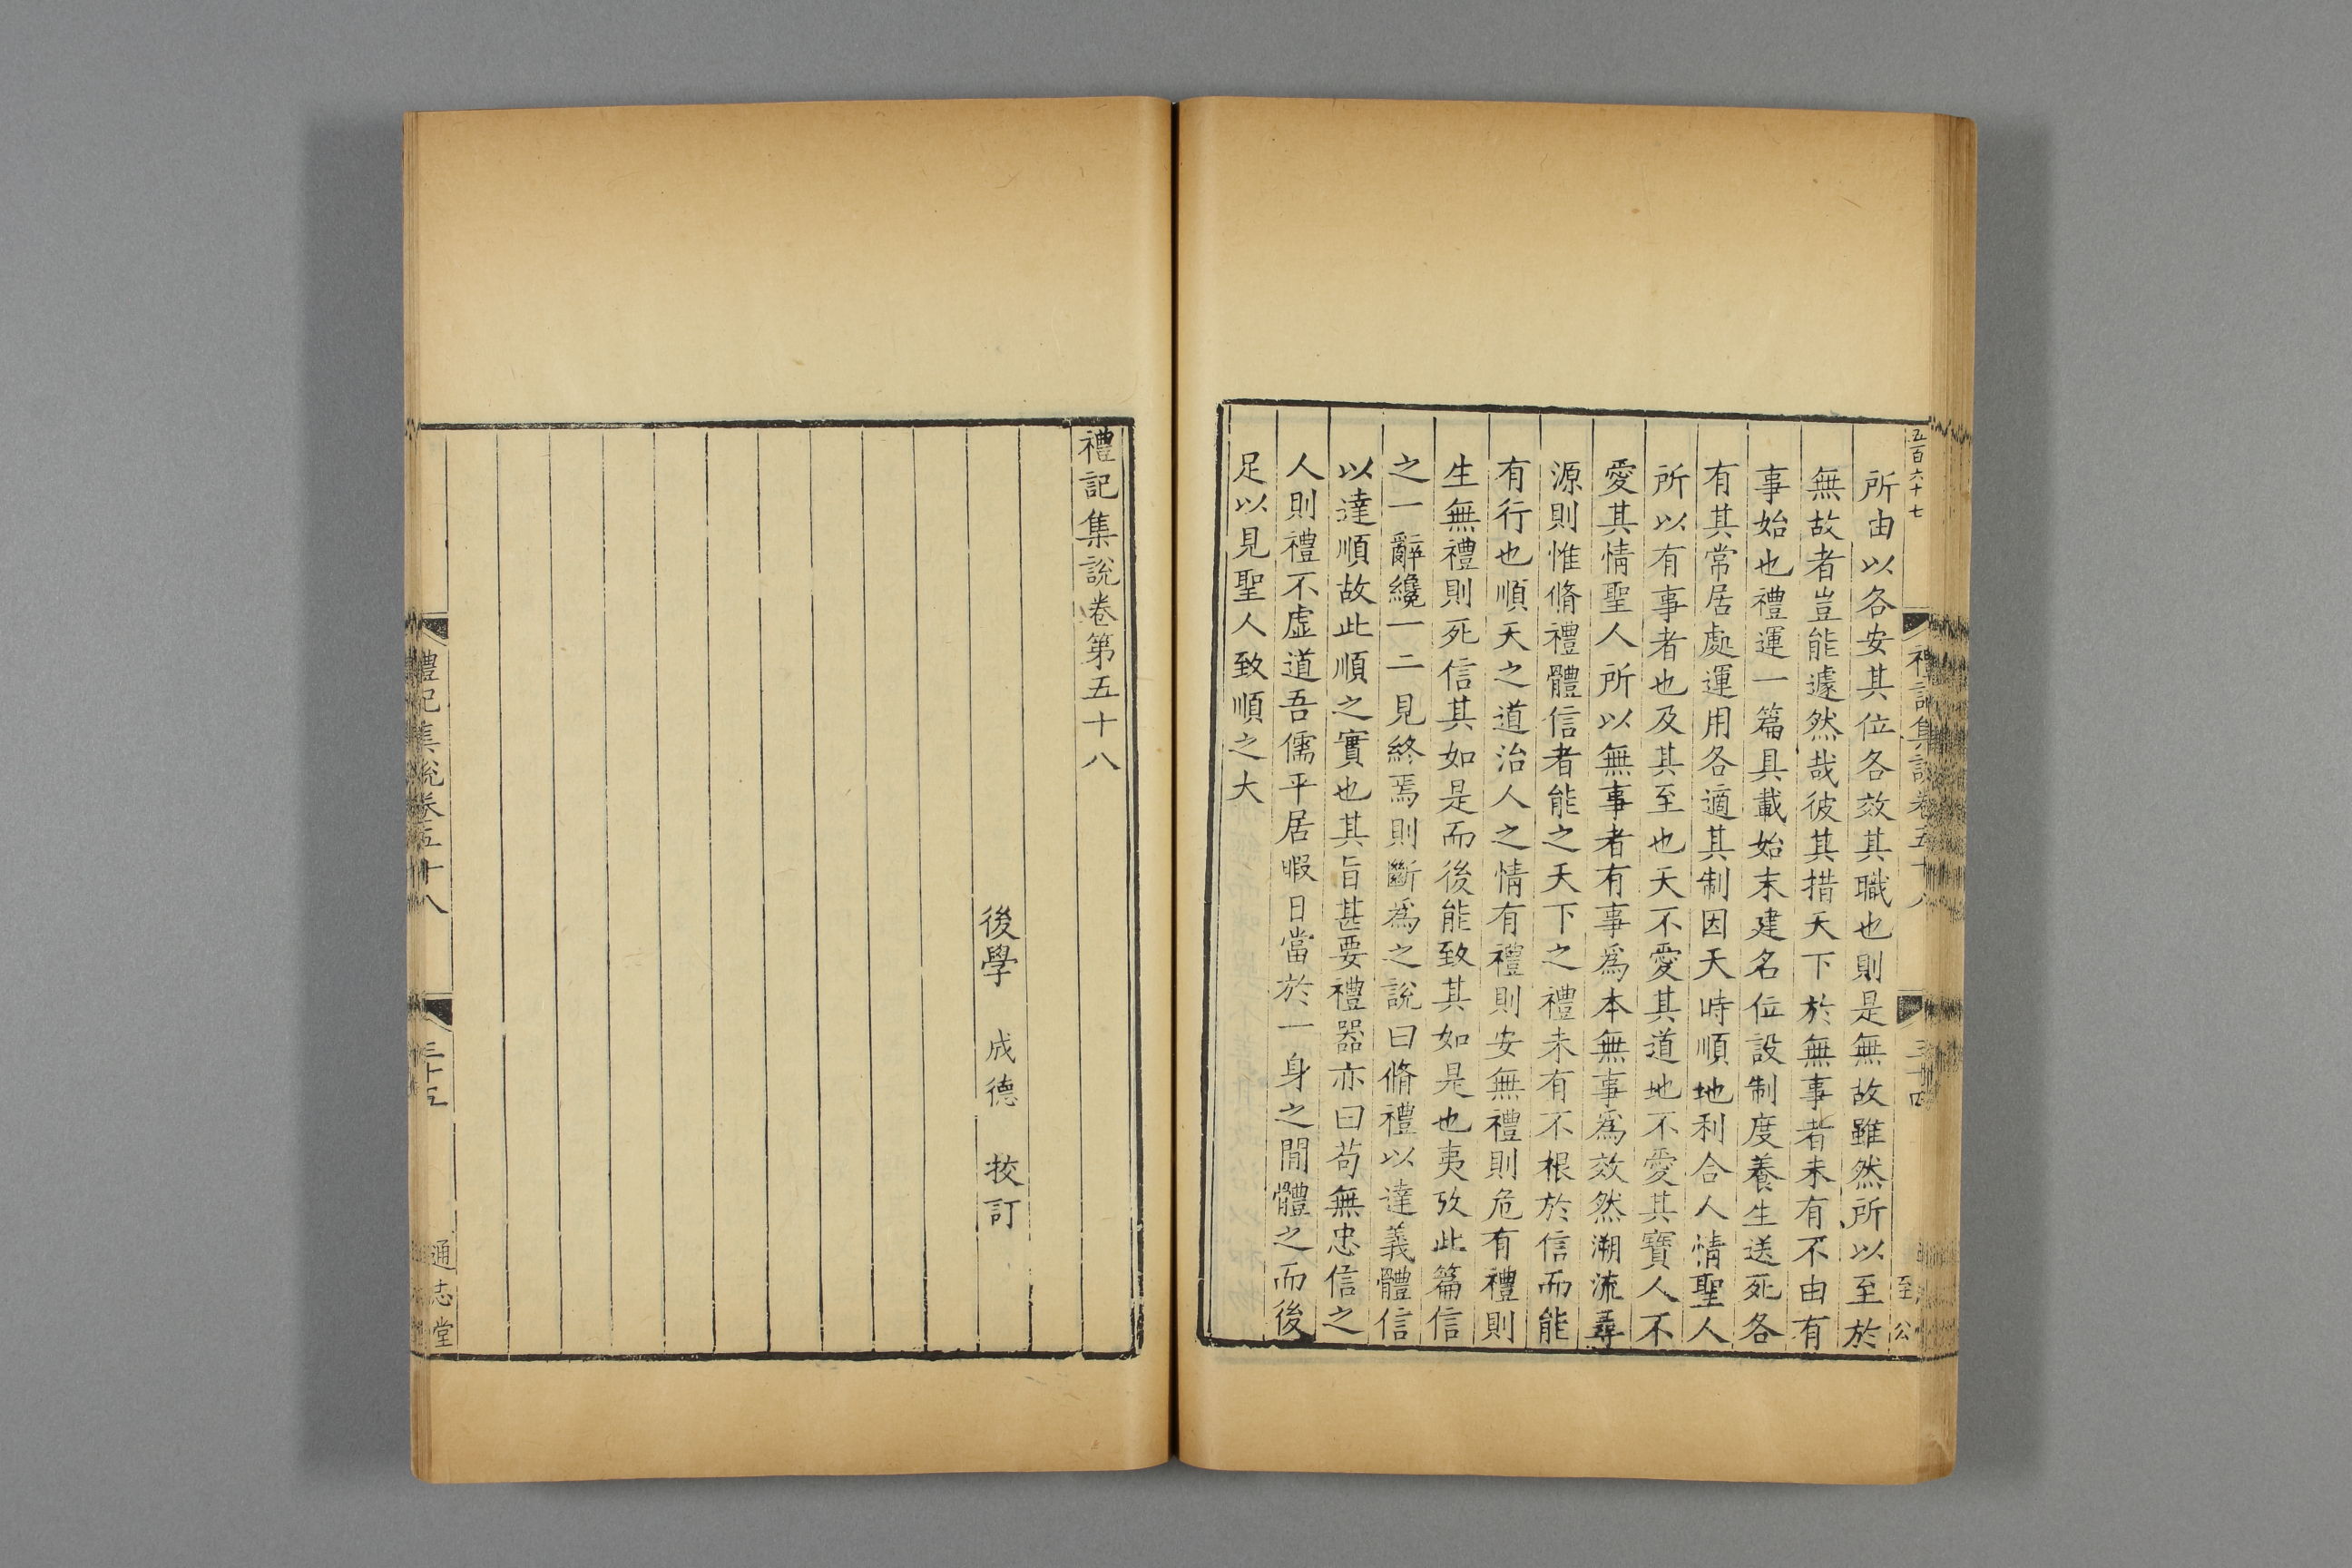 五百六十七
禮記集說卷五十八
三十四
至公
所由以各安其位各效其職也則是無故雖然所以至於
無故者豈能遽然哉彼其措天下於無事者未有不由有
事始也禮運一篇具載始末建名位設制度養生送死各
有其常居處運用各適其制因天時順地利合人情聖人
所以有事者也及其至也天不愛其道地不愛其寶人不
愛其情聖人所以無事者有事爲本無事爲效然溯流尋
源則惟脩禮體信者能之天下之禮未有不根於信而能
有行也順天之道治人之情有禮則安無禮則危有禮則
生無禮則死信其如是而後能致其如是也夷攷此篇信
之一辭纔一二見終焉則斷爲之說曰脩禮以達義體信
以達順故此順之實也其旨甚要禮器亦曰苟無忠信之
人則禮不虛道吾儒平居暇日當於一身之閒體之而後
足以見聖人致順之大
禮記集說卷第五十八
後學 成德 挍訂
禮記集說卷五十八
三十五
通志堂